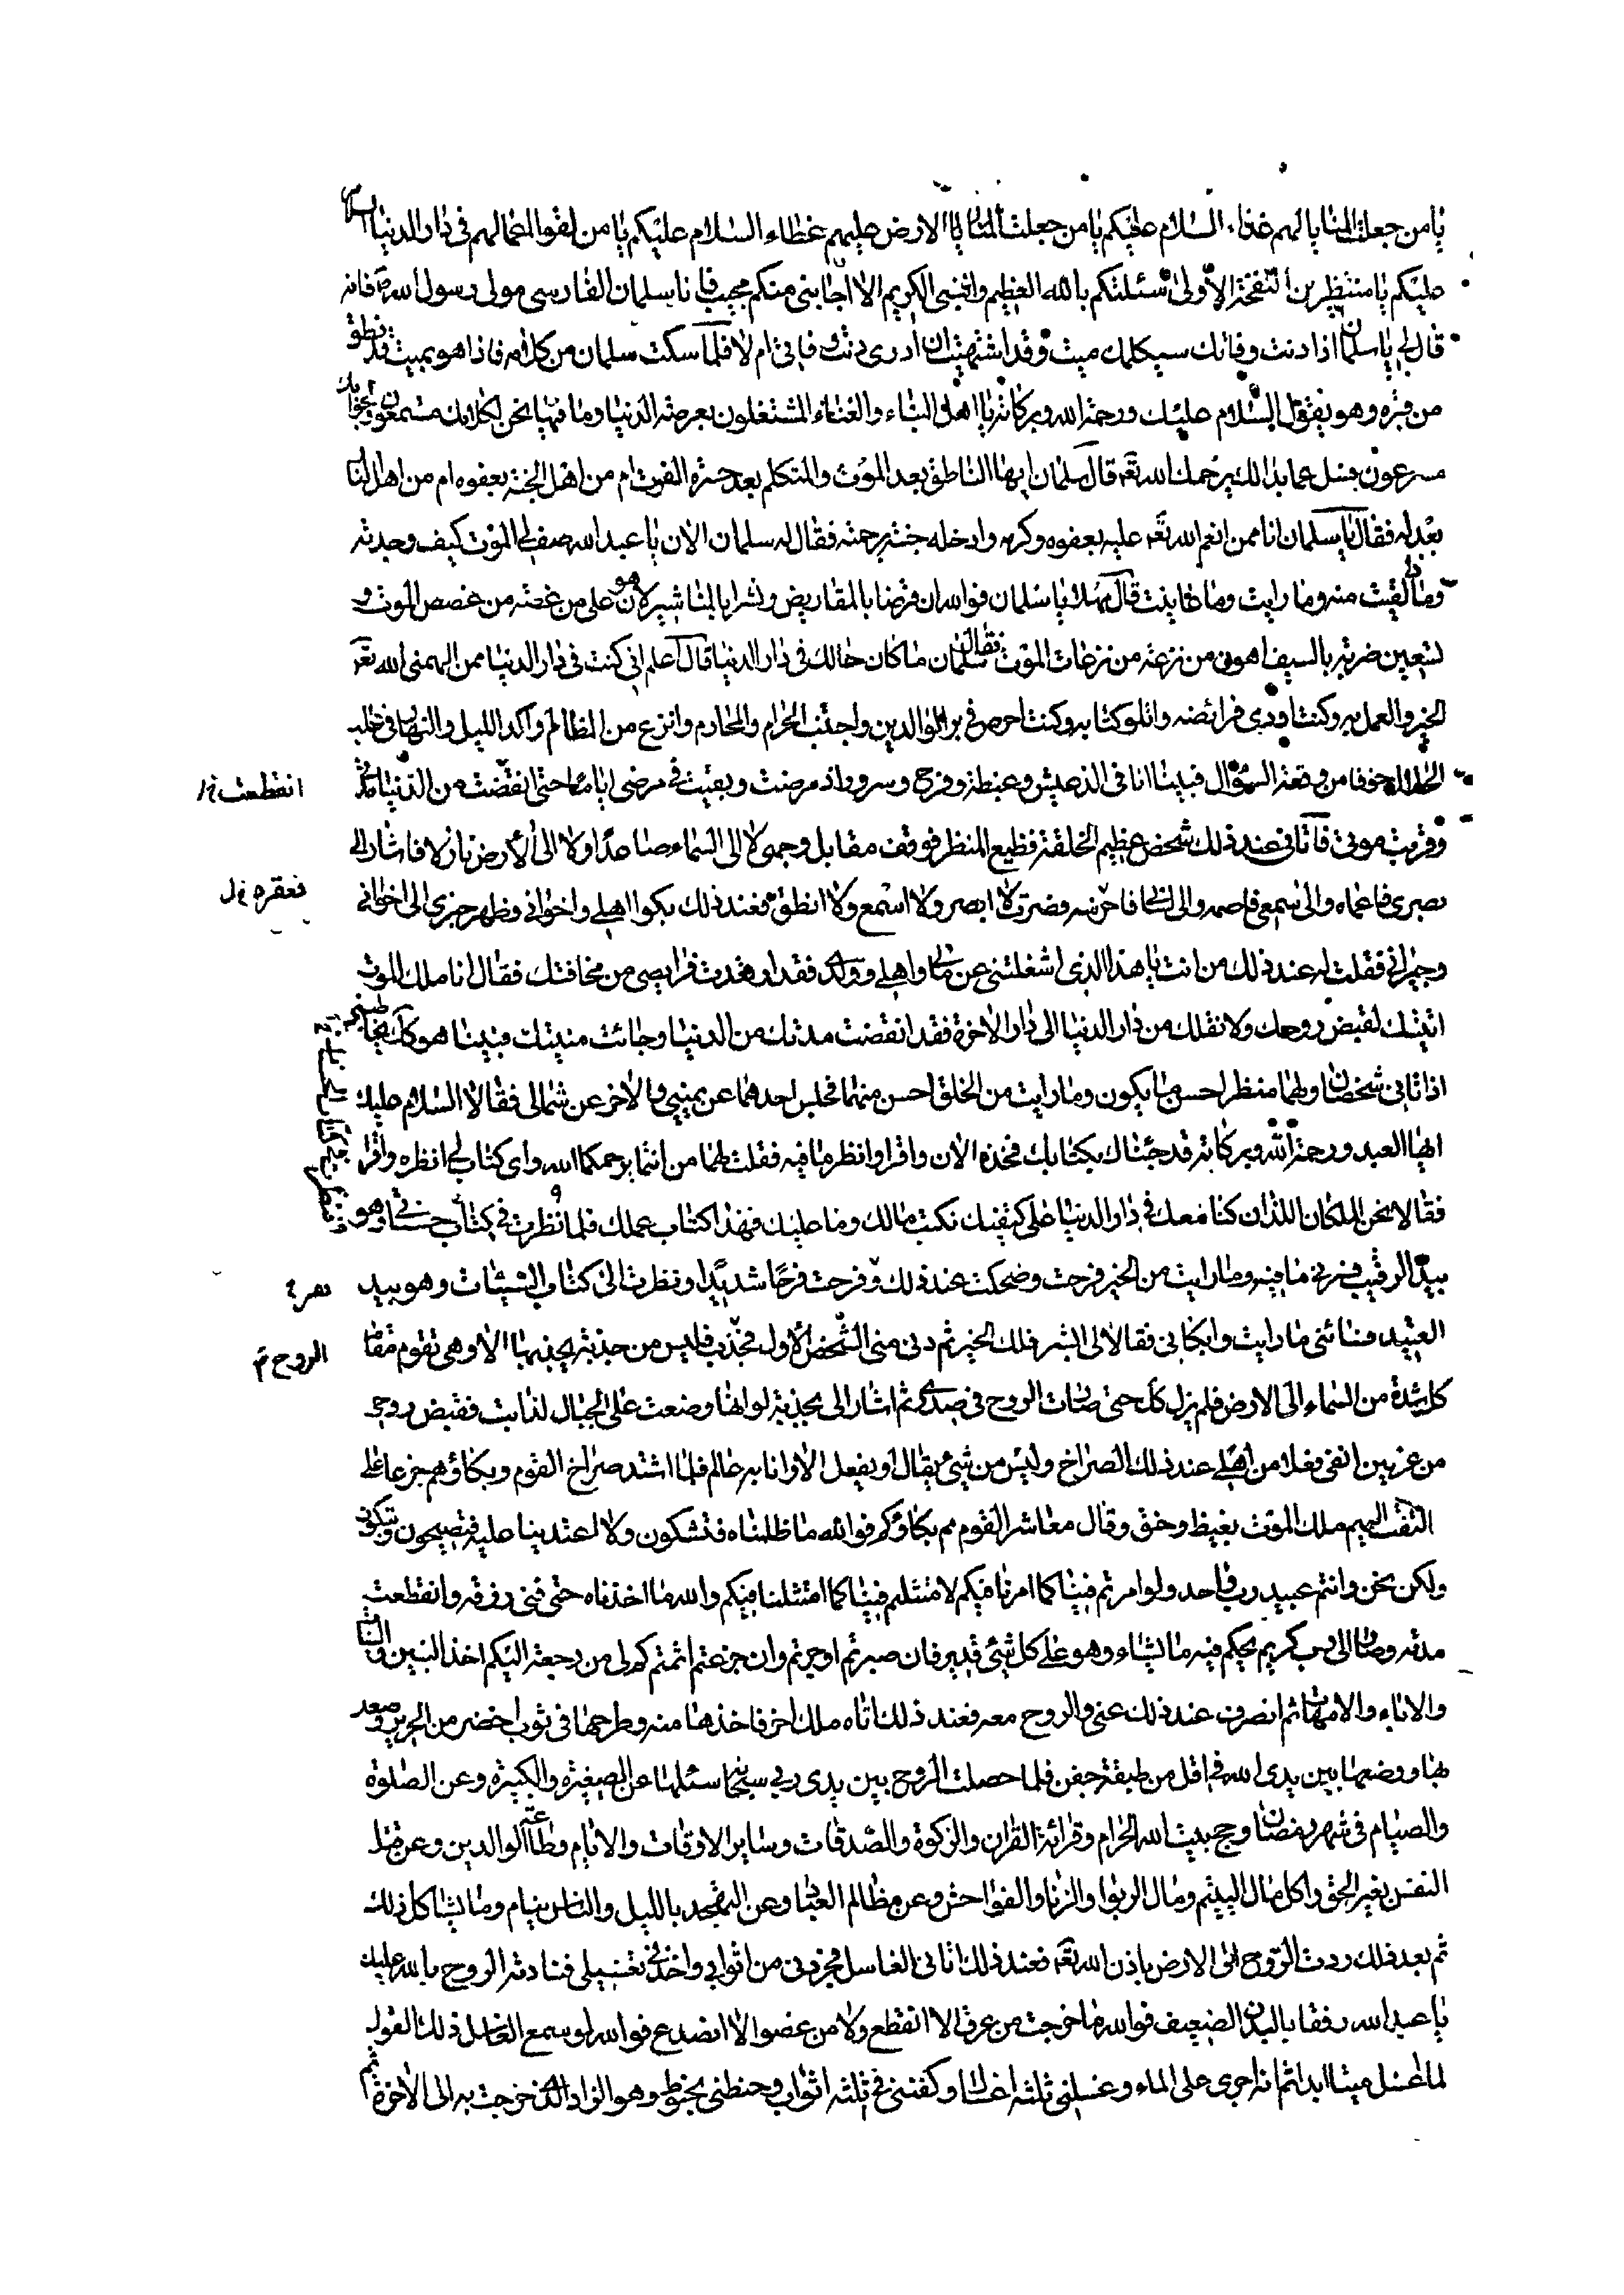 يا من جعلت المنايا لهم غذاء السلام عليكم يا من جعلت الارض عليهم غطاء السلام عليكم يا من لقوا اعمالهم فى دار الدنيا السلام
عليكم يا منتظرين النفخة الاولى اسئلتكم بالله العظيم والنبى الكريم الا اجابنى منكم مجيب فانا سلمان الفارسى مولى رسول الله ص فانه
قال لى يا سلمان اذا دنت وفاتك سيكلمك ميت وقد اشتهيت ان ادرى دنت وفاتى ام لا فلما سكت سلمان من كلامه فاذا هو بميت قد نطق
من قبره وهو يقول السلام عليك ورحمة الله وبركاته يا اهل البناء والفناء المشتغلون بعرصة الدنيا وما فيها نحن لكلامك مستمعون ولجوابك
مسرعون فسل عما بدا لك يرحمك الله تعه قال سلمان ايها الناطق بعد الموت والمتكلم بعد حسرة الفوت ام من اهل الجنة بعفوه ام من اهل النار
بعدله فقال يا سلمان انا ممن انعم الله تعه عليه بعفوه وكرمه وادخله جنته برحمته فقال له سلمان الان يا عبد الله صف لى الموت كيف وجدته
وما ذا لقيت منه وما رايت وما عاينت قال مهلا يا سلمان فوالله ان قرضا بالمقاريض ونشرا بالمناشير لاهون على من غصة من غصص الموت و
لتسعين ضربة بالسيف اهون من نزعة من نزعات الموت فقال سلمان ما كان حالك فى دار الدنيا قال اعلم انى كنت فى دار الدنيا ممن الهمنى الله تعه
الخير والعمل به وكنت اودى فرائضه واتلو كتابه وكنت احرص فى بر الوالدين واجتنب الحرام والمحارم وانزع من المظالم واكد الليل والنهار فى طلب
الحلال خوفا من وقعة السؤال فبينا انا فى الذ عيش وغبطة وفرح وسرور اذ مرضت وبقيت فى مرضى اياما حتى انقضت من الدنيا مدتى
انقطعت خ ل
وقربت موتى فاتانى عند ذلك شخص عظيم الخلقة فظيع المنظر فوقف مقابل وجهى لا الى السماء صاعدا ولا الى الارض نازلا فاشار الى
بصرى فاعماه والى سمعى فاصمه والى لسانى فاخرسه فصرت لا ابصر ولا اسمع ولا انطق فعند ذلك بكوا اهلى واخوانى وظهر خبرى الى اخوانى
فعقره خ ل
وجيرانى فقلت له عند ذلك من انت يا هذا الذى اشغلتنى عن مالى واهلى وولدى فقد ارتعدت فرايصى من مخافتك فقال انا ملك الموت
اتيتك لقبض روحك ولانقلك من دار الدنيا الى دار الاخرة فقد انقضت مدتك من الدنيا وجائت منيتك فبينا هو كك يخاطبنى
اذ اتانى شخصان ولهما منظر احسن ما يكون وما رايت من الخلق احسن منهما فجلس احدهما عن يمينى والاخر عن شمالى فقالا السلام عليك
ايها العبد ورحمة الله وبركاته قد جئناك بكتابك فخذه الان واقرا وانظر ما فيه فقلت لهما من انتما يرحمكما الله واى كتاب لى انظره واقرا
فقالا نحن الملكان اللذان كنا معك فى دار الدنيا على كتفيك نكتب مالك وما عليك فهذا كتاب عملك فلما نظرت فى كتاب حسناتى وهو
بيد الرقيب فسرنى ما فيه وما رايت من الخير فرحت وضحكت عند ذلك وفرحت فرحا شديدا ونظرت الى كتاب السيئات وهو بيد
العتيد فسائنى ما رايت وابكانى فقالا لى ابشر فلك الخير ثم دنى منى الشخص الاول فجذب فليس من جذبة يجذبها الا وهى تقوم مقام
الروح
كل شدة من السماء الى الارض فلم يزل كك حتى صارت الروح فى صدرى ثم اشار الى بجذبة لو انها وضعت على الجبال لذابت فقبض روحى
من عرنين انفى فعلا من اهلى عند ذلك الصراخ وليس من شئ يقال او يفعل الا وانا به عالم فلما اشتد صراخ القوم وبكاؤهم جزعا على
التفت اليهم ملك الموت بغيظ وحنق وقال معاشر القوم مم بكاؤكم فوالله ما ظلمناه فتشكون ولا اعتدينا عليه فتصيحون وتبكون
ولكن نحن وانتم عبيد رب واحد ولو امرتم فينا كما امرنا فيكم لامتثلتم فينا كما امتثلنا فيكم والله ما اخذناه حتى فنى رزقه وانقطعت
مدته وصار الى رب كريم يحكم فيه ما يشاء وهو على كل شئ قدير فان صبرتم اوجرتم وان جزعتم اثمتم كم لى من رجعة اليكم اخذ البنين والبنات
والاباء والامهات ثم انصرف عند ذلك عنى والروح معه فعند ذلك اتاه ملك اخر فاخذها منه وطرحها فى ثوب اخضر من الحرير وصعد
بها ووضعها بين يدى الله فى اقل من طبقة جفن فلما حصلت الروح بين يدى ربى سبحانه سئلها عن الصغيرة والكبيرة وعن الصلوة
والصيام فى شهر رمضان وحج بيت الله الحرام وقرائة القران والزكوة والصدقات وساير الاوقات والايام وطاعة الوالدين وعن قتل
النفس بغير الحق واكل مال اليتيم ومال الربوا والزنا والفواحش وعن مظالم العباد وعن التهجد بالليل والناس نيام وما يشاكل ذلك
ثم بعد ذلك ردت الروح الى الارض باذن الله تعه فعند ذلك اتانى الغاسل فجردنى من اثوابى واخذ فى تغسيلى فنادته الروح بالله عليك
يا عبد الله رفقا بالبدن الضعيف فوالله ما خرجت من عرق الا انقطع ولا من عضو الا انصدع فوالله لو سمع الغاسل ذلك القول
لما غسل ميتا ابدا ثم انه اجرى على الماء وغسلنى ثلثة اغسال وكفننى فى ثلثة اثواب وحنطنى بحنوط وهو الزاد الذى خرجت به الى الاخرة ثم